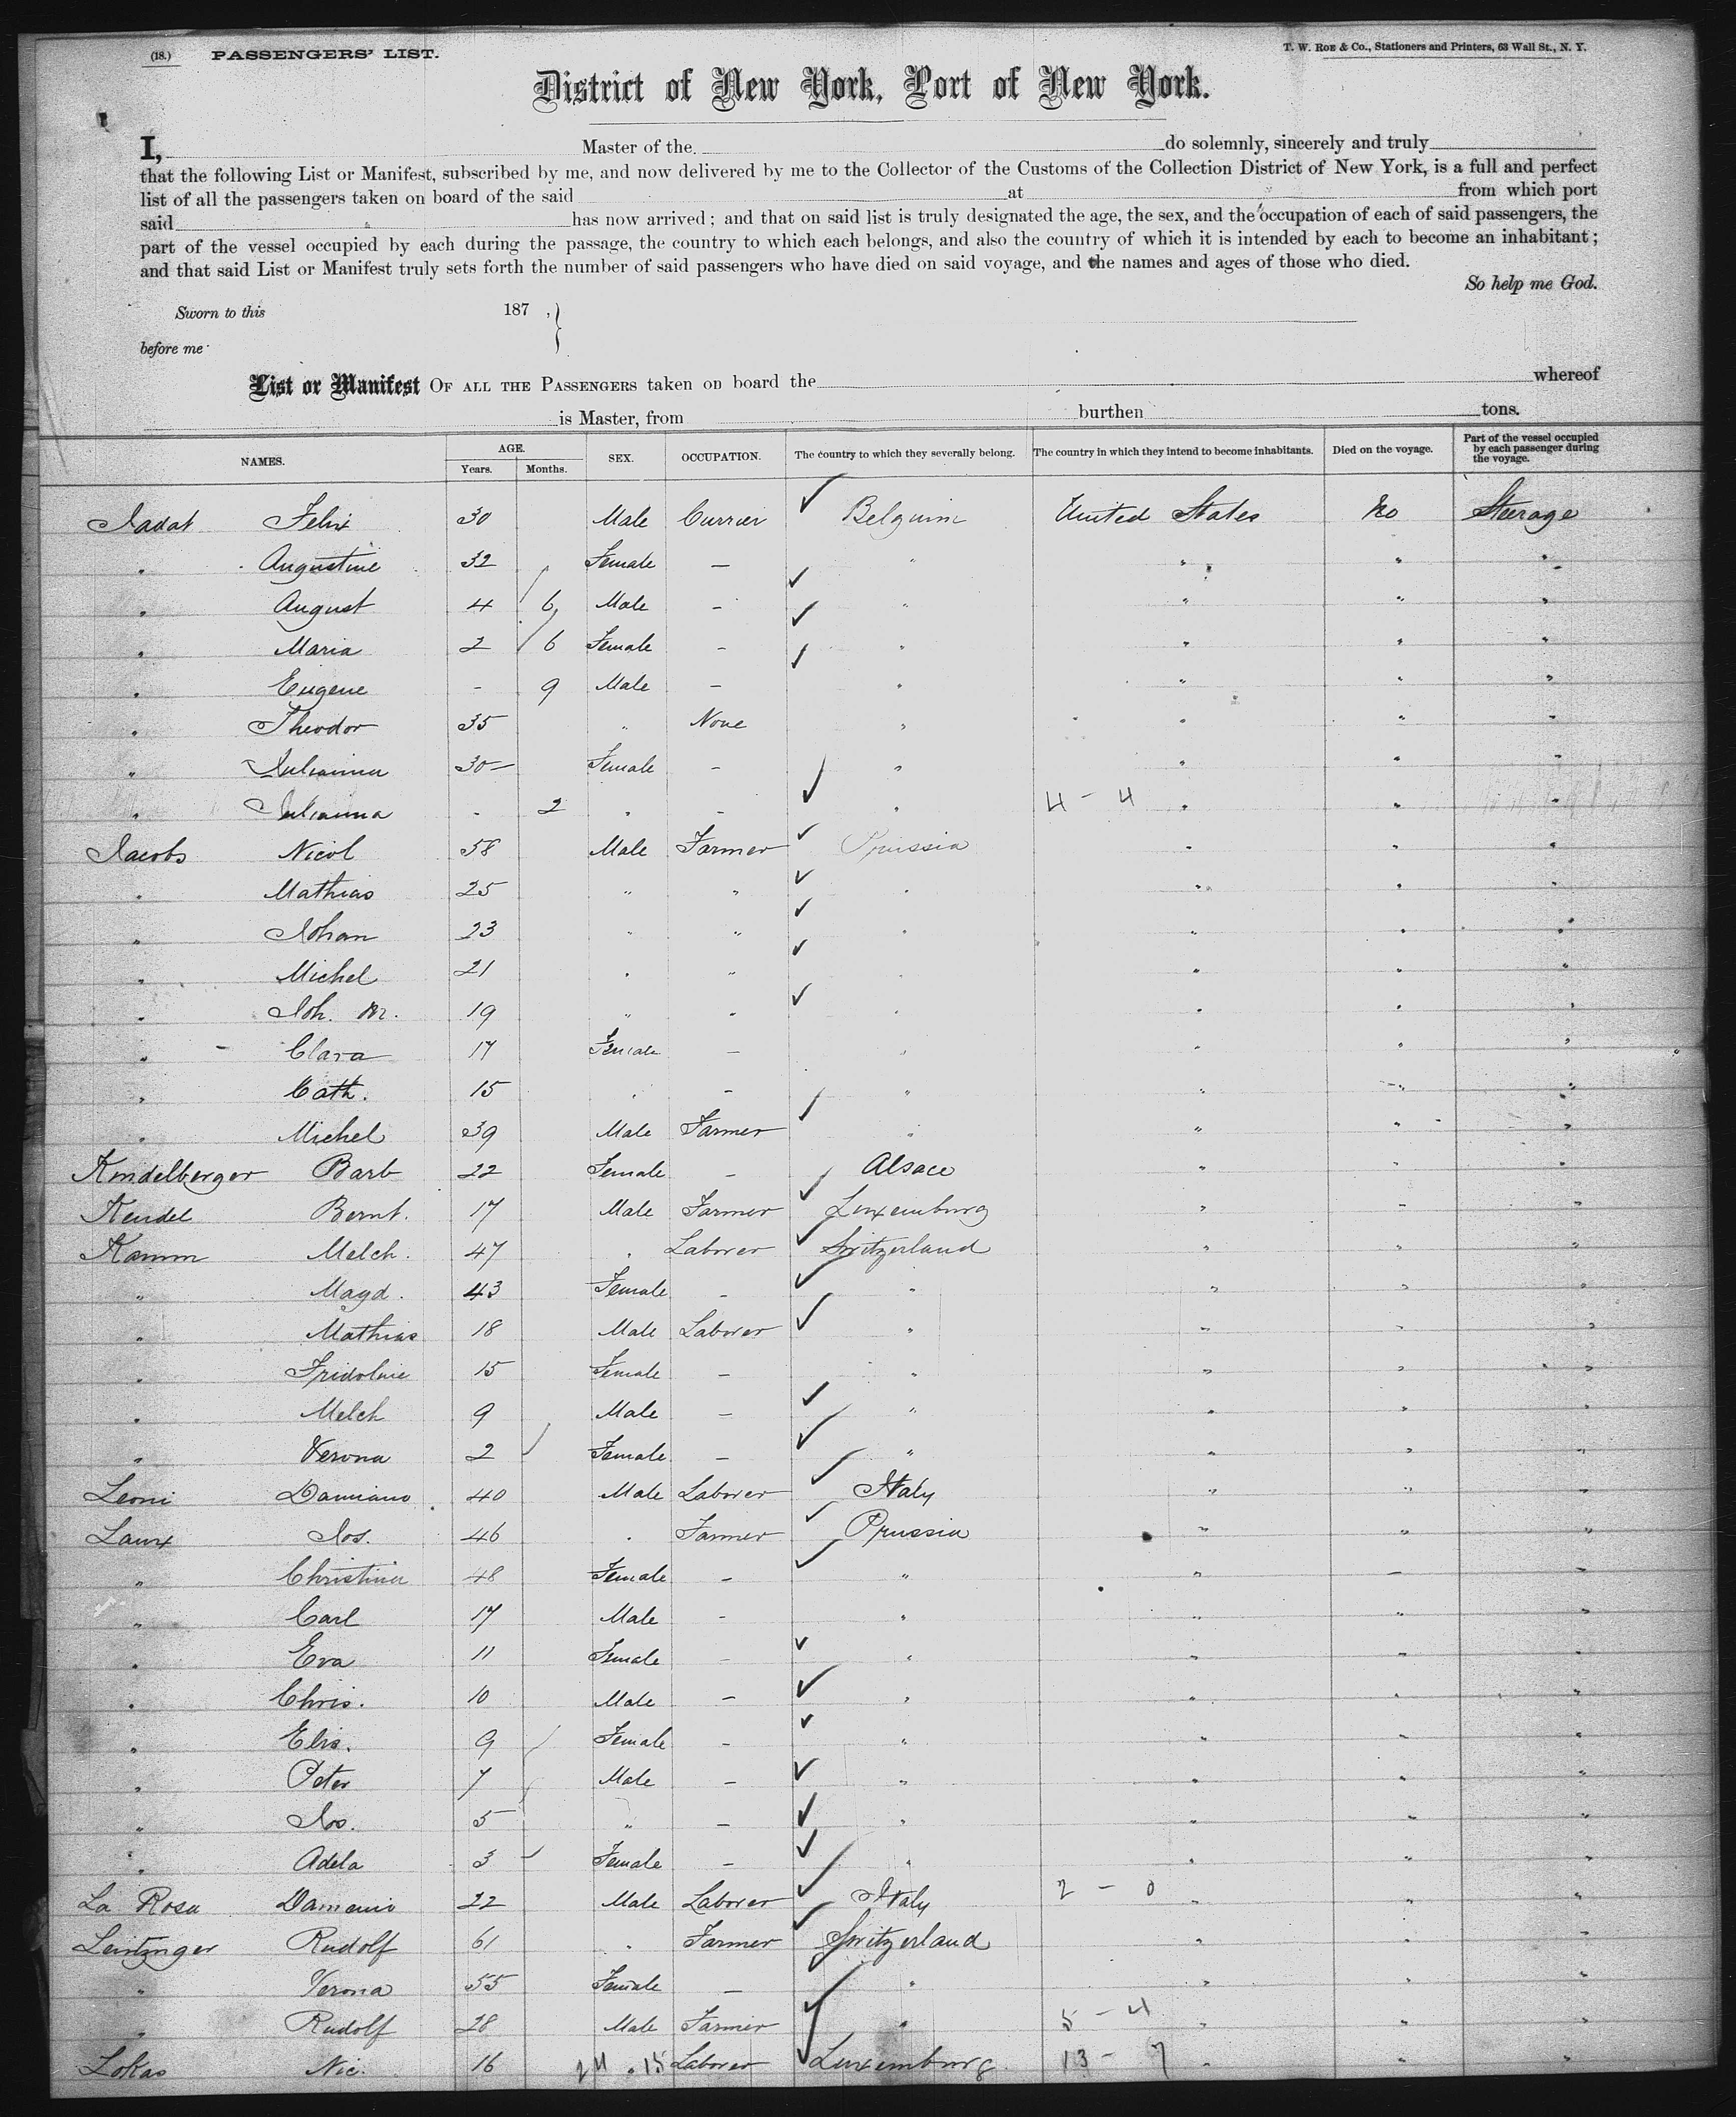 (18.) PASSENGERS' LIST.
T. W. ROE & Co., Stationers and Printers, 63 Wall St., N. Y.
District of New York, Port of New York.
I, Master of the do solemnly, sincerely and truly
that the following List or Manifest, subscribed by me, and now delivered by me to the Collector of the Customs of the Collection District of New York, is a full and perfect
list of all the passengers taken on board of the said at from which port
said has now arrived; and that on said list is truly designated the age, the sex, and the occupation of each of said passengers, the
part of the vessel occupied by each during the passage, the country to which each belongs, and also the country of which it is intended by each to become an inhabitant;
and that said List or Manifest truly sets forth the number of said passengers who have died on said voyage, and the names and ages of those who died.
So help me God.
Sworn to this 187 ,
before me
List or Manifest OF ALL THE PASSENGERS taken on board the whereof
is Master, from burthen tons.
NAMES. AGE. Years. Months. SEX. OCCUPATION. The country to which they severally belong. The country in which they intend to become inhabitants. Died on the voyage. Part of the vessel occupied by each passenger during the voyage.
Jadat Felix 30 Male Currier Belguim United States No Steerage
" Augustine 32 Female — " " " "
" August 4 6 Male - " " " "
" Maria 2 6 Female - " " " "
" Eugene - 9 Male — " " " "
" Theodor 35 " None " " " "
" Julianna 30 — Female - " " " "
" Julianna - 2 " - " 4 - 4 " " "
Jacobs Nicol 58 Male Farmer Prussia " " "
" Mathias 25 " " " " " "
" Johan 23 " " " " " "
" Michel 21 " " " " " "
" Joh. M. 19 " " " " " "
" Clara 17 Female — " " " "
" Cath. 15 " — " " " "
" Michel 39 Male Farmer " " " "
Kindelberger Barb 22 Female — Alsace " " "
Keudel Bernt. 17 Male Farmer Luxemburg " " "
Kamm Melch. 47 " Laborer Switzerland " " "
" Magd. 43 Female - " " " "
" Mathias 18 Male Laborer " " " "
" Fridoline 15 Female — " " " "
" Melch 9 Male — " " " "
" Verona 2 Female — " " " "
Leoni Damiano 40 Male Laborer Italy " " "
Laux Jos. 46 " Farmer Prussia " " "
" Christina 48 Female - " " - "
" Carl 17 Male - " " " "
" Eva 11 Female - " " " "
" Chris. 10 Male — " " " "
" Elis. 9 Female - " " " "
" Peter 7 Male — " " " "
" Jos. 5 " — " " " "
" Adela 3 Female — " " " "
La Rosa Damanio 22 Male Laborer Italy 2 - 0 " " "
Leutzinger Rudolf 61 " Farmer Switzerland " " "
" Verona 55 Female — " " " "
" Rudolf 28 Male Farmer " 5 - 4 " " "
Lokas Nic. 16 24 . 15 Laborer Luxemburg 13 - 7 " " "